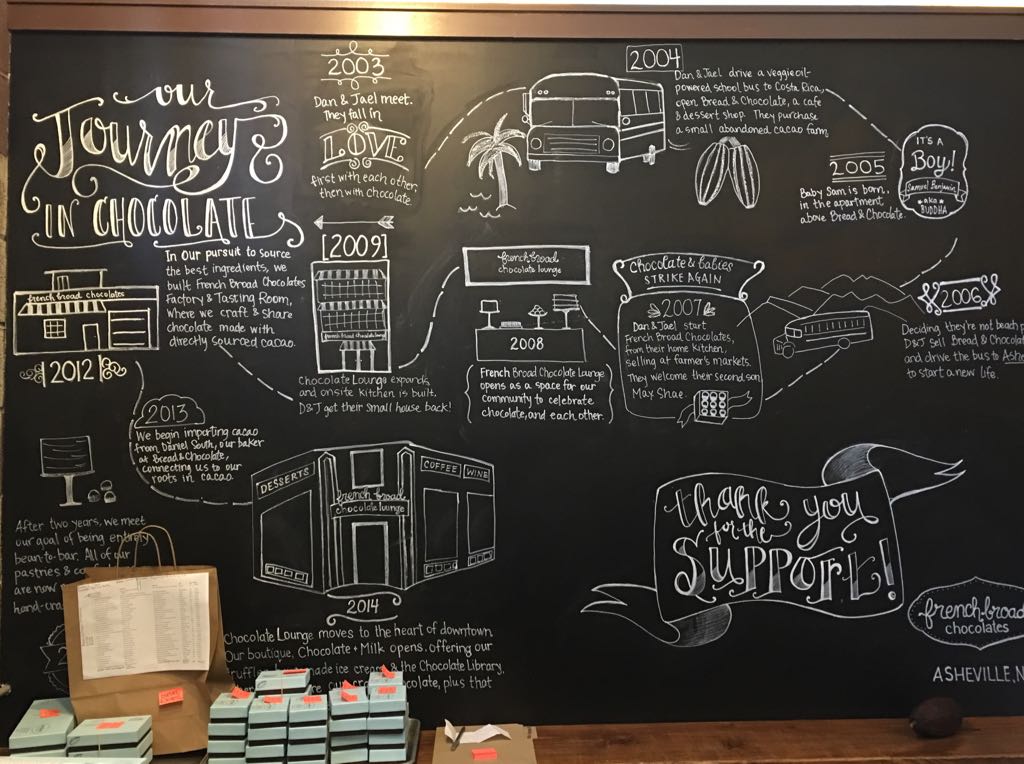 our
Journey
IN CHOCOLATE
2003
Dan & Jael meet.
They fall in
LOVE
first with each other,
then with chocolate.
2004
Dan & Jael drive a veggie oil-
powered school bus to Costa Rica,
open Bread & Chocolate, a cafe
& dessert shop. They purchase
a small abandoned cacao farm
2005
Baby Sam is born,
in the apartment
above Bread & Chocolate.
IT'S A
Boy!
Samuel Benjamin
aka
BUDDHA
2006
Deciding they're not beach
D&J sell Bread & Chocola
and drive the bus to Ashe
to start a new life.
Chocolate & babies
STRIKE AGAIN
2007
Dan & Jael start
French Broad Chocolates,
from their home kitchen,
selling at farmer's markets.
They welcome their second son
Max Shae.
french broad
chocolate lounge
2008
French Broad Chocolate Lounge
opens as a space for our
community to celebrate
chocolate, and each other.
[2009]
french broad chocolate lounge
Chocolate Lounge expands,
and onsite kitchen is built.
D&J get their small house back!
french broad chocolates
2012
In our pursuit to source
the best ingredients, we
built French Broad Chocolates
Factory & Tasting Room,
where we craft & share
chocolate made with
directly sourced cacao.
2013
We begin importing cacao
from Daniel South, our baker
at Bread & Chocolate,
connecting us to our
roots in cacao.
After two years, we meet
our goal of being entirely
bean-to-bar. All of our
pastries &
are now
hand-cra
DESSERTS
COFFEE
WINE
french broad
chocolate lounge
2014
Chocolate Lounge moves to the heart of downtown.
Our boutique, Chocolate + Milk opens, offering our
ice cream & the Chocolate Library,
chocolate, plus that
thank you
for the
SUPPORT!
french broad
chocolates
ASHEVILLE, N